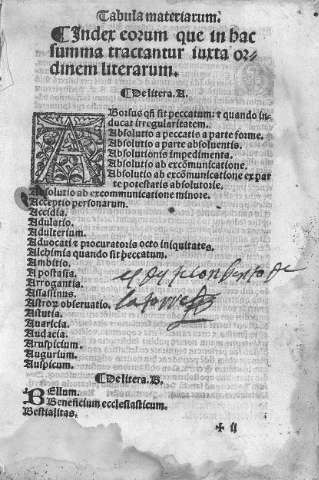 Tabula materiarum.
¶Index eorum que in hac
summa tractantur iuxta or-
dinem literarum.
¶De litera. A.
ABorsus qñ sit peccatum: ⁊ quando in-
ducat irregularitatem.
Absolutio a peccatis a parte forme.
Absolutio a parte absoluentis.
Absolutionis impedimenta.
Absolutio ab excõmunicatione.
Absolutio ab excõmunicatione ex par
te potestatis absolutorie.
Absolutio ab excommunicatione minore.
Acceptio personarum.
Accidia.
Adulatio.
Adulterium.
Aduocati ⁊ procuratoris octo iniquitates.
Alchimia quando sit peccatum.
Ambitio.
Apostasia.
Arrogantia.
Assassinus.
Astrorum obseruatio.
Astutia.
Auaricia.
Audacia.
Aruspicium.
Augurium.
Auspicium.
es del convento de
la torre
¶De litera. B.
BEllum.
Beneficium ecclesiasticum.
Bestialitas.
✠ ij